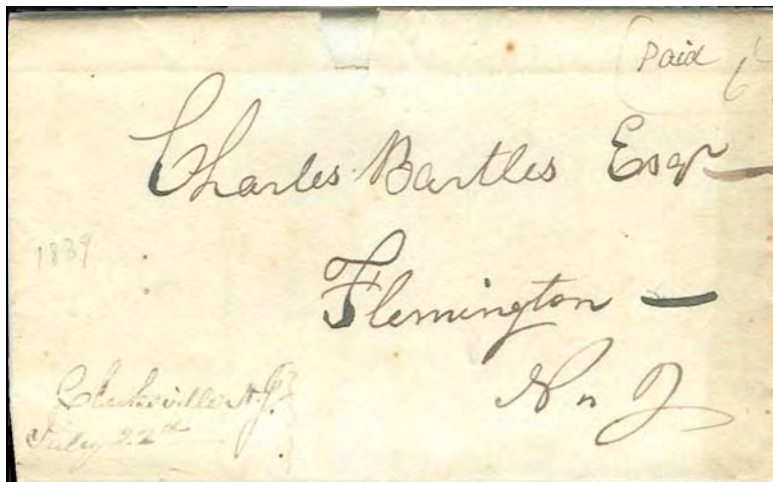 Paid 6
Charles Bartles Esqr
1839
Flemington —
N. J
Clarksville N.J.
July 22th